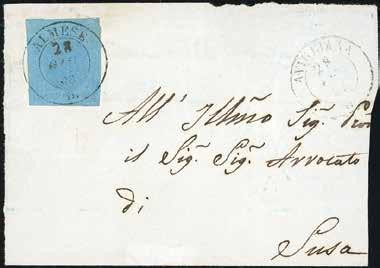 ALMESE
28
AVIGLIANA
All' Illmo Sig. Sig.
il Sig. Sig. Avvocato
di
Susa